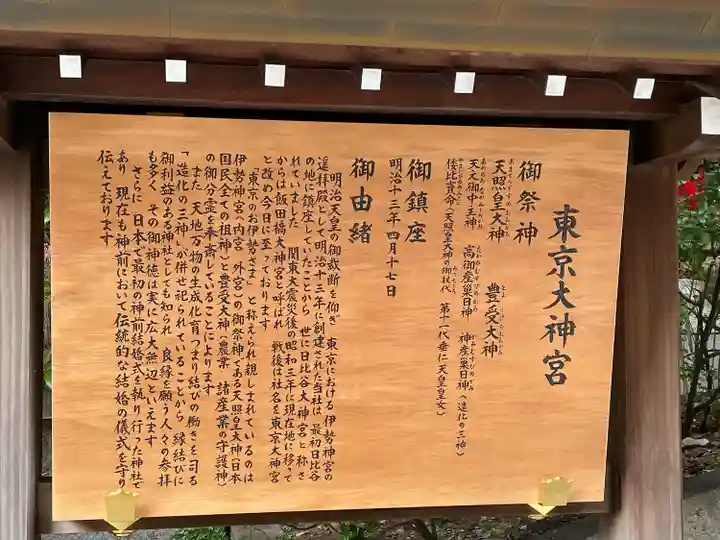 東京大神宮
御祭神
天照皇大神　豊受大神
天之御中主神　高御産巣日神　神産巣日神（造化の三神）
倭比賣命（天照皇大神の御杖代　第十一代垂仁天皇皇女）
御鎮座
明治十三年四月十七日
御由緒
明治天皇の御裁断を仰ぎ　東京における伊勢神宮の
遥拝殿として明治十三年に創建された当社は　最初日比谷
の地に鎮座していたことから　世に日比谷大神宮と称さ
れていたが　関東大震災後の昭和三年に現在地に移って
からは飯田橋大神宮と呼ばれ　戦後は社名を東京大神宮
と改め今日に至っております
「東京のお伊勢さま」と称えられ親しまれているのは
伊勢神宮（内宮　外宮）の御祭神である天照皇大神（日本
国民全ての祖神）と豊受大神（農業　諸産業の守護神）
の御分霊を奉斎していることによります
また　天地万物の生成化育つまり結びの働きを司る
「造化の三神」が併せ祀られていることから　縁結びに
御利益のある神社としても知られ　良縁を願う人々の参拝
も多く　その御神徳は実に広大無辺といえます
さらに　日本で最初の神前結婚式を執り行った神社で
あり　現在も神前において伝統的な結婚の儀式を守り
伝えております